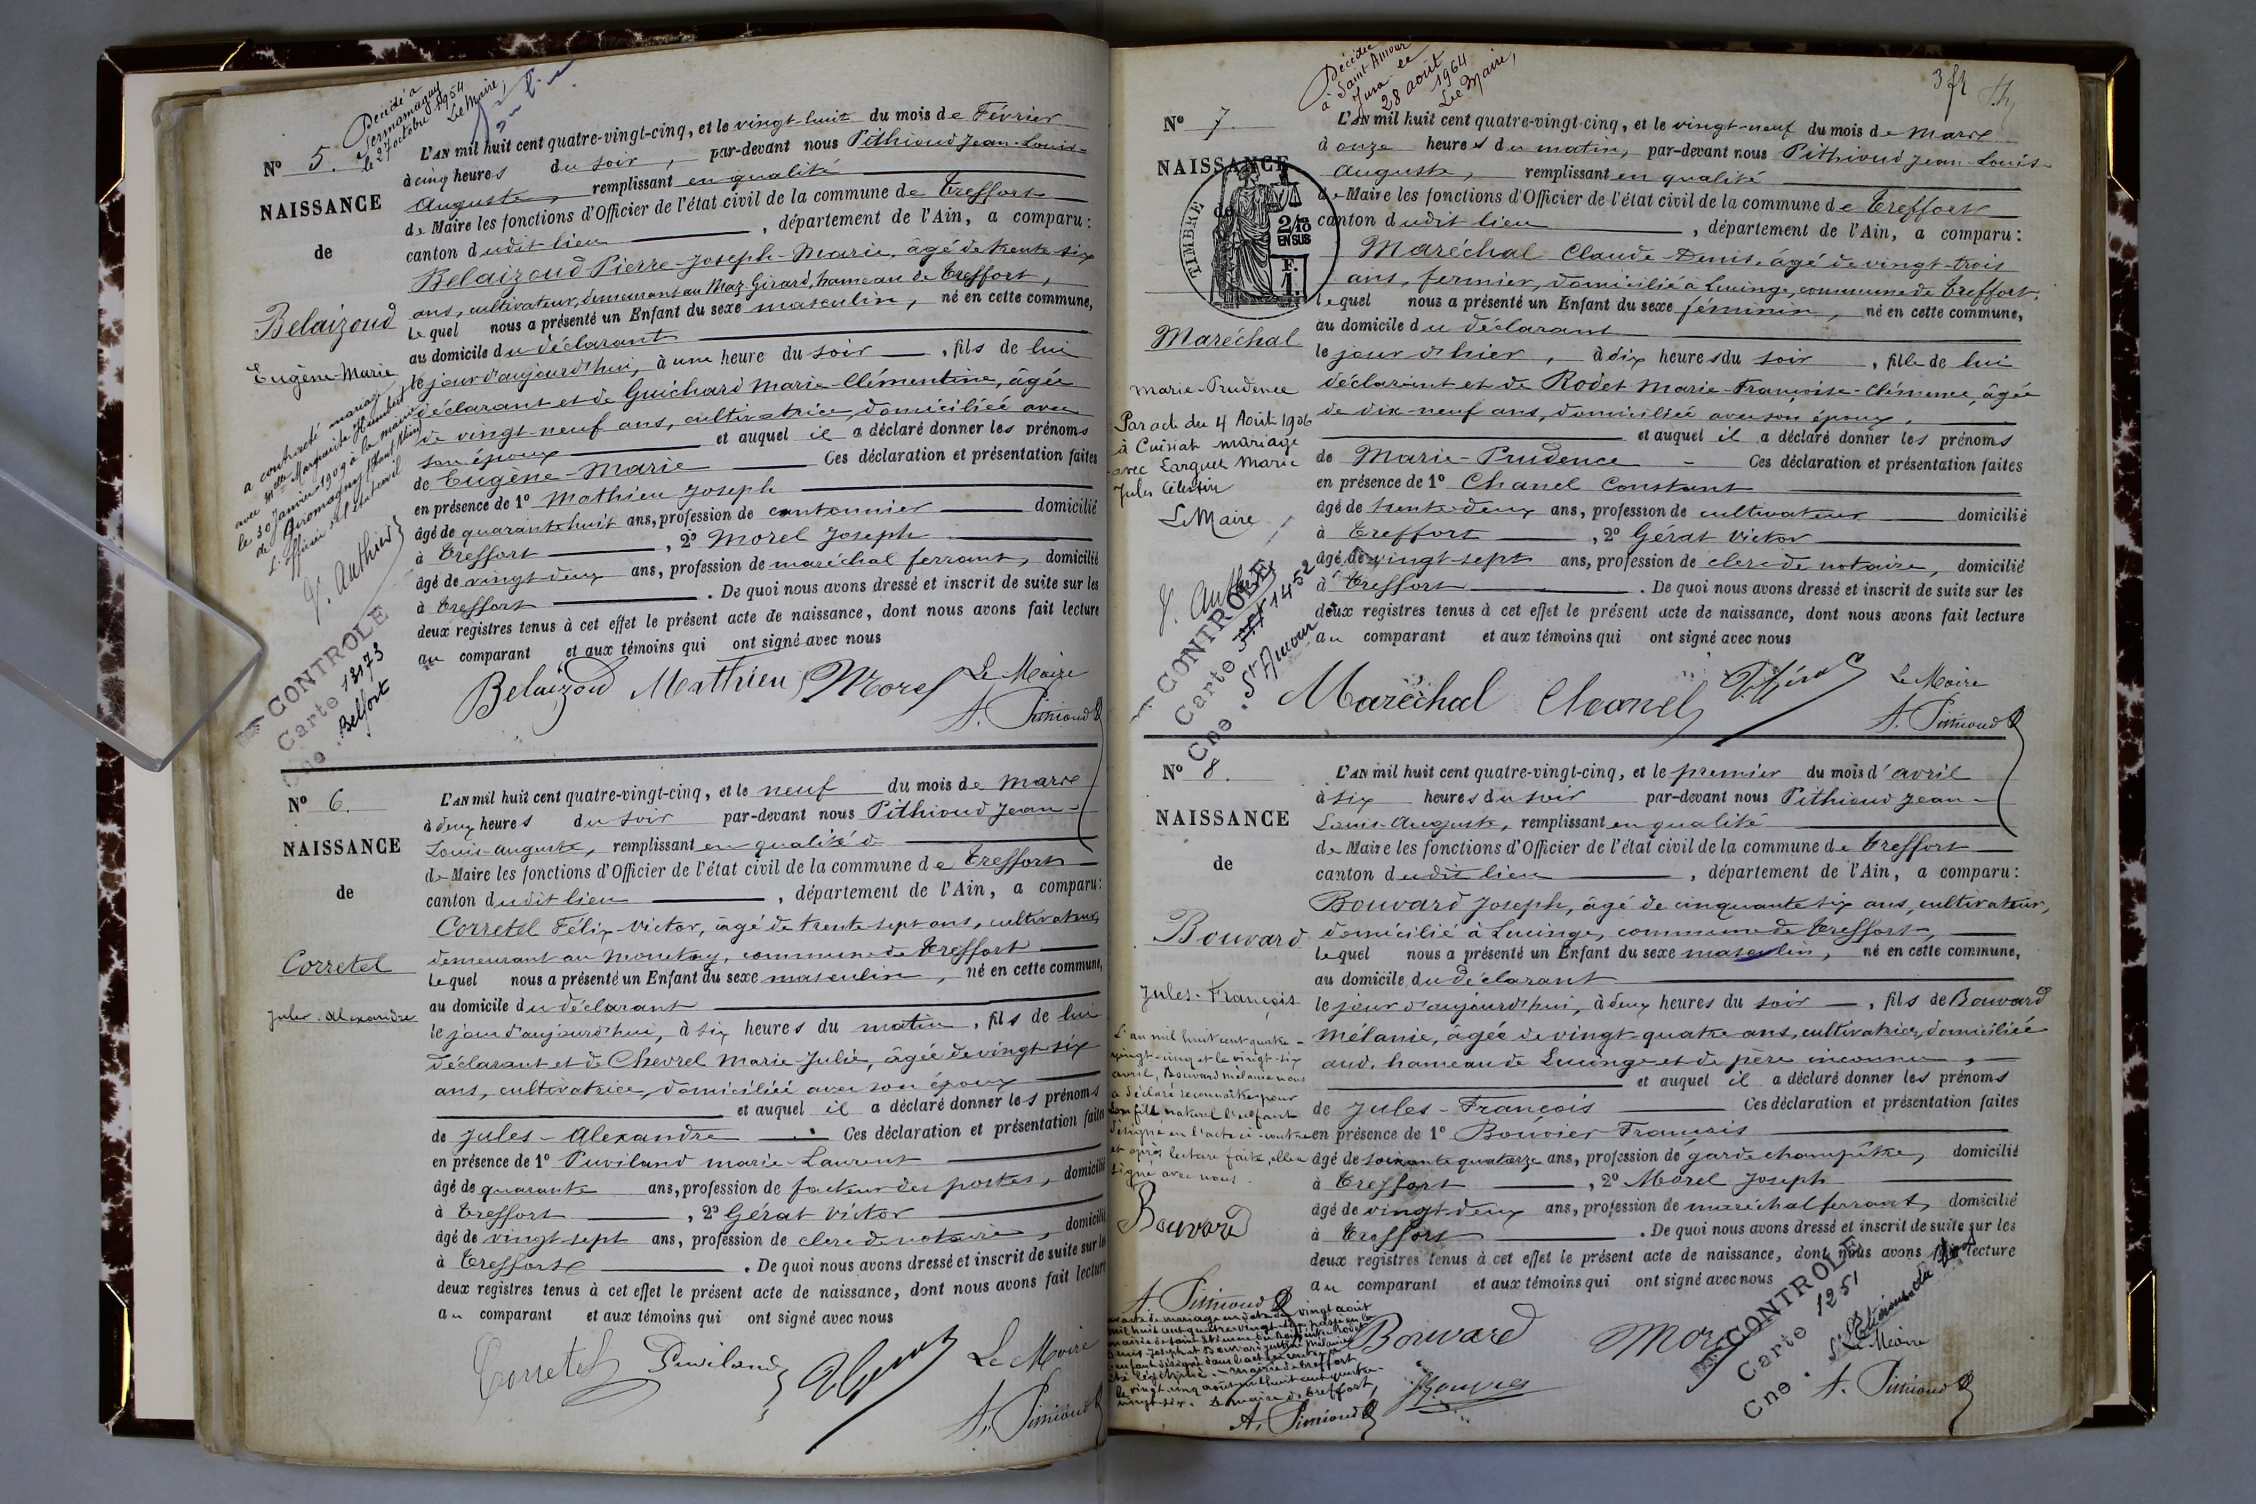 Décédé à
Sermamagny
le 27 octobre 1954
Le Maire,
N° 5.
NAISSANCE
de
Belaizoud
Eugène-Marie
a contracté mariage
avec Melle Marguerite Humbert
le 30 Janvier 1909 à la mairie
de Giromagny
L'officier de l'état civil
CONTROLE
Carte 13173
Cne. Belfort
L'AN mil huit cent quatre-vingt-cinq, et le vingt-huit du mois de Février
à cinq heures du soir, par-devant nous Pithioud Jean-Louis-
Auguste, remplissant en qualité
de Maire les fonctions d'Officier de l'état civil de la commune de Treffort
canton dudit lieu, département de l'Ain, a comparu:
Belaizoud Pierre-Joseph-Marie, âgé de trente six
ans, cultivateur, demeurant au Maz-Girard, hameau de Treffort,
Lequel nous a présenté un Enfant du sexe masculin, né en cette commune,
au domicile du déclarant
le jour d'aujourd'hui, à une heure du soir, fils de lui
déclarant et de Guichard Marie-Clémentine, âgée
de vingt-neuf ans, cultivatrice, domiciliée avec
son époux et auquel il a déclaré donner les prénoms
de Eugène-Marie Ces déclaration et présentation faites
en présence de 1° Mathieu Joseph
âgé de quarante huit ans, profession de cantonnier domicilié
à Treffort, 2° Morel Joseph
âgé de vingt-deux ans, profession de maréchal ferrant, domicilié
à Treffort. De quoi nous avons dressé et inscrit de suite sur les
deux registres tenus à cet effet le présent acte de naissance, dont nous avons fait lecture
au comparant et aux témoins qui ont signé avec nous
Belaizoud Mathieu Morel Le Maire
A. Pithioud
N° 6.
NAISSANCE
de
Corretel
Jules-Alexandre
L'AN mil huit cent quatre-vingt-cinq, et le neuf du mois de Mars
à deux heures du soir par-devant nous Pithioud Jean-
Louis-Auguste, remplissant en qualité d
de Maire les fonctions d'Officier de l'état civil de la commune de Treffort
canton dudit lieu, département de l'Ain, a comparu:
Corretel Félix-Victor, âgé de trente sept ans, cultivateur,
demeurant au Monetay, commune de Treffort
Lequel nous a présenté un Enfant du sexe masculin, né en cette commune,
au domicile du déclarant
le jour d'aujourd'hui, à six heures du matin, fils de lui
déclarant et de Chevrel Marie Julie, âgée de vingt-six
ans, cultivatrice, domiciliée avec son époux
et auquel il a déclaré donner les prénoms
de Jules-Alexandre Ces déclaration et présentation faites
en présence de 1° Puviland Marie-Laurent
âgé de quarante ans, profession de facteur des postes, domicilié
à Treffort, 2° Gérat Victor
âgé de vingt-sept ans, profession de clerc de notaire, domicilié
à Treffort. De quoi nous avons dressé et inscrit de suite sur les
deux registres tenus à cet effet le présent acte de naissance, dont nous avons fait lecture
au comparant et aux témoins qui ont signé avec nous
Corretel Puviland Le Maire
A. Pithioud
Décédée
à Saint Amour
Jura le
28 août
1964
Le Maire,
3 fr
N° 7.
NAISSANCE
de
TIMBRE
2/10
EN SUS
F.
1.
Maréchal
Marie-Prudence
Par acte du 4 Août 1906
à Cuisiat mariage
avec Larguet Marie
Jules Célestin
Le Maire
CONTROLE
Carte 1452
Cne. St Amour
L'AN mil huit cent quatre-vingt-cinq, et le vingt-neuf du mois de Mars
à onze heures du matin, par-devant nous Pithioud Jean-Louis-
Auguste, remplissant en qualité
de Maire les fonctions d'Officier de l'état civil de la commune de Treffort
canton dudit lieu, département de l'Ain, a comparu:
Maréchal Claude-Denis, âgé de vingt-trois
ans, fermier, domicilié à Lucinge, commune de Treffort,
Lequel nous a présenté un Enfant du sexe féminin, né en cette commune,
au domicile du déclarant
le jour d'hier, à dix heures du soir, fille de lui
déclarant et de Rodet Marie-Françoise-Clémence, âgée
de dix-neuf ans, domiciliée avec son époux,
et auquel il a déclaré donner les prénoms
de Marie-Prudence - Ces déclaration et présentation faites
en présence de 1° Chanel Constant
âgé de trente-deux ans, profession de cultivateur domicilié
à Treffort, 2° Gérat Victor
âgé de vingt-sept ans, profession de clerc de notaire, domicilié
à Treffort. De quoi nous avons dressé et inscrit de suite sur les
deux registres tenus à cet effet le présent acte de naissance, dont nous avons fait lecture
au comparant et aux témoins qui ont signé avec nous
Maréchal Chanel V. Gérat Le Maire
A. Pithioud
N° 8.
NAISSANCE
de
Bouvard
Jules-François
L'an mil huit cent quatre-
vingt-cinq et le vingt-six
avril, Bouvard Mélanie nous
a déclaré reconnaître pour
son fils naturel l'enfant
désigné en l'acte ci-contre
et après lecture faite, elle a
signé avec nous.
Bouvard
A. Pithioud
L'AN mil huit cent quatre-vingt-cinq, et le premier du mois d'avril
à six heures du soir par-devant nous Pithioud Jean-
Louis-Auguste, remplissant en qualité
de Maire les fonctions d'Officier de l'état civil de la commune de Treffort
canton dudit lieu, département de l'Ain, a comparu:
Bouvard Joseph, âgé de cinquante six ans, cultivateur,
domicilié à Lucinge, commune de Treffort,
Lequel nous a présenté un Enfant du sexe masculin, né en cette commune,
au domicile du déclarant
le jour d'aujourd'hui, à deux heures du soir, fils de Bouvard
Mélanie, âgée de vingt-quatre ans, cultivatrice, domiciliée
aud. hameau de Lucinge et de père inconnu,
et auquel il a déclaré donner les prénoms
de Jules-François Ces déclaration et présentation faites
en présence de 1° Bouvier François
âgé de soixante quatorze ans, profession de garde champêtre, domicilié
à Treffort, 2° Morel Joseph
âgé de vingt-deux ans, profession de maréchal ferrant, domicilié
à Treffort. De quoi nous avons dressé et inscrit de suite sur les
deux registres tenus à cet effet le présent acte de naissance, dont nous avons fait lecture
au comparant et aux témoins qui ont signé avec nous
acte de mariage en date du vingt août
mil huit cent quatre-vingt-six
Mairie de Treffort
le vingt cinq août mil huit cent quatre-
vingt-six. Le maire de Treffort,
A. Pithioud
Bouvard Morel
Le Maire
A. Pithioud
CONTROLE
Carte 1251
Cne. St Etienne du Bois